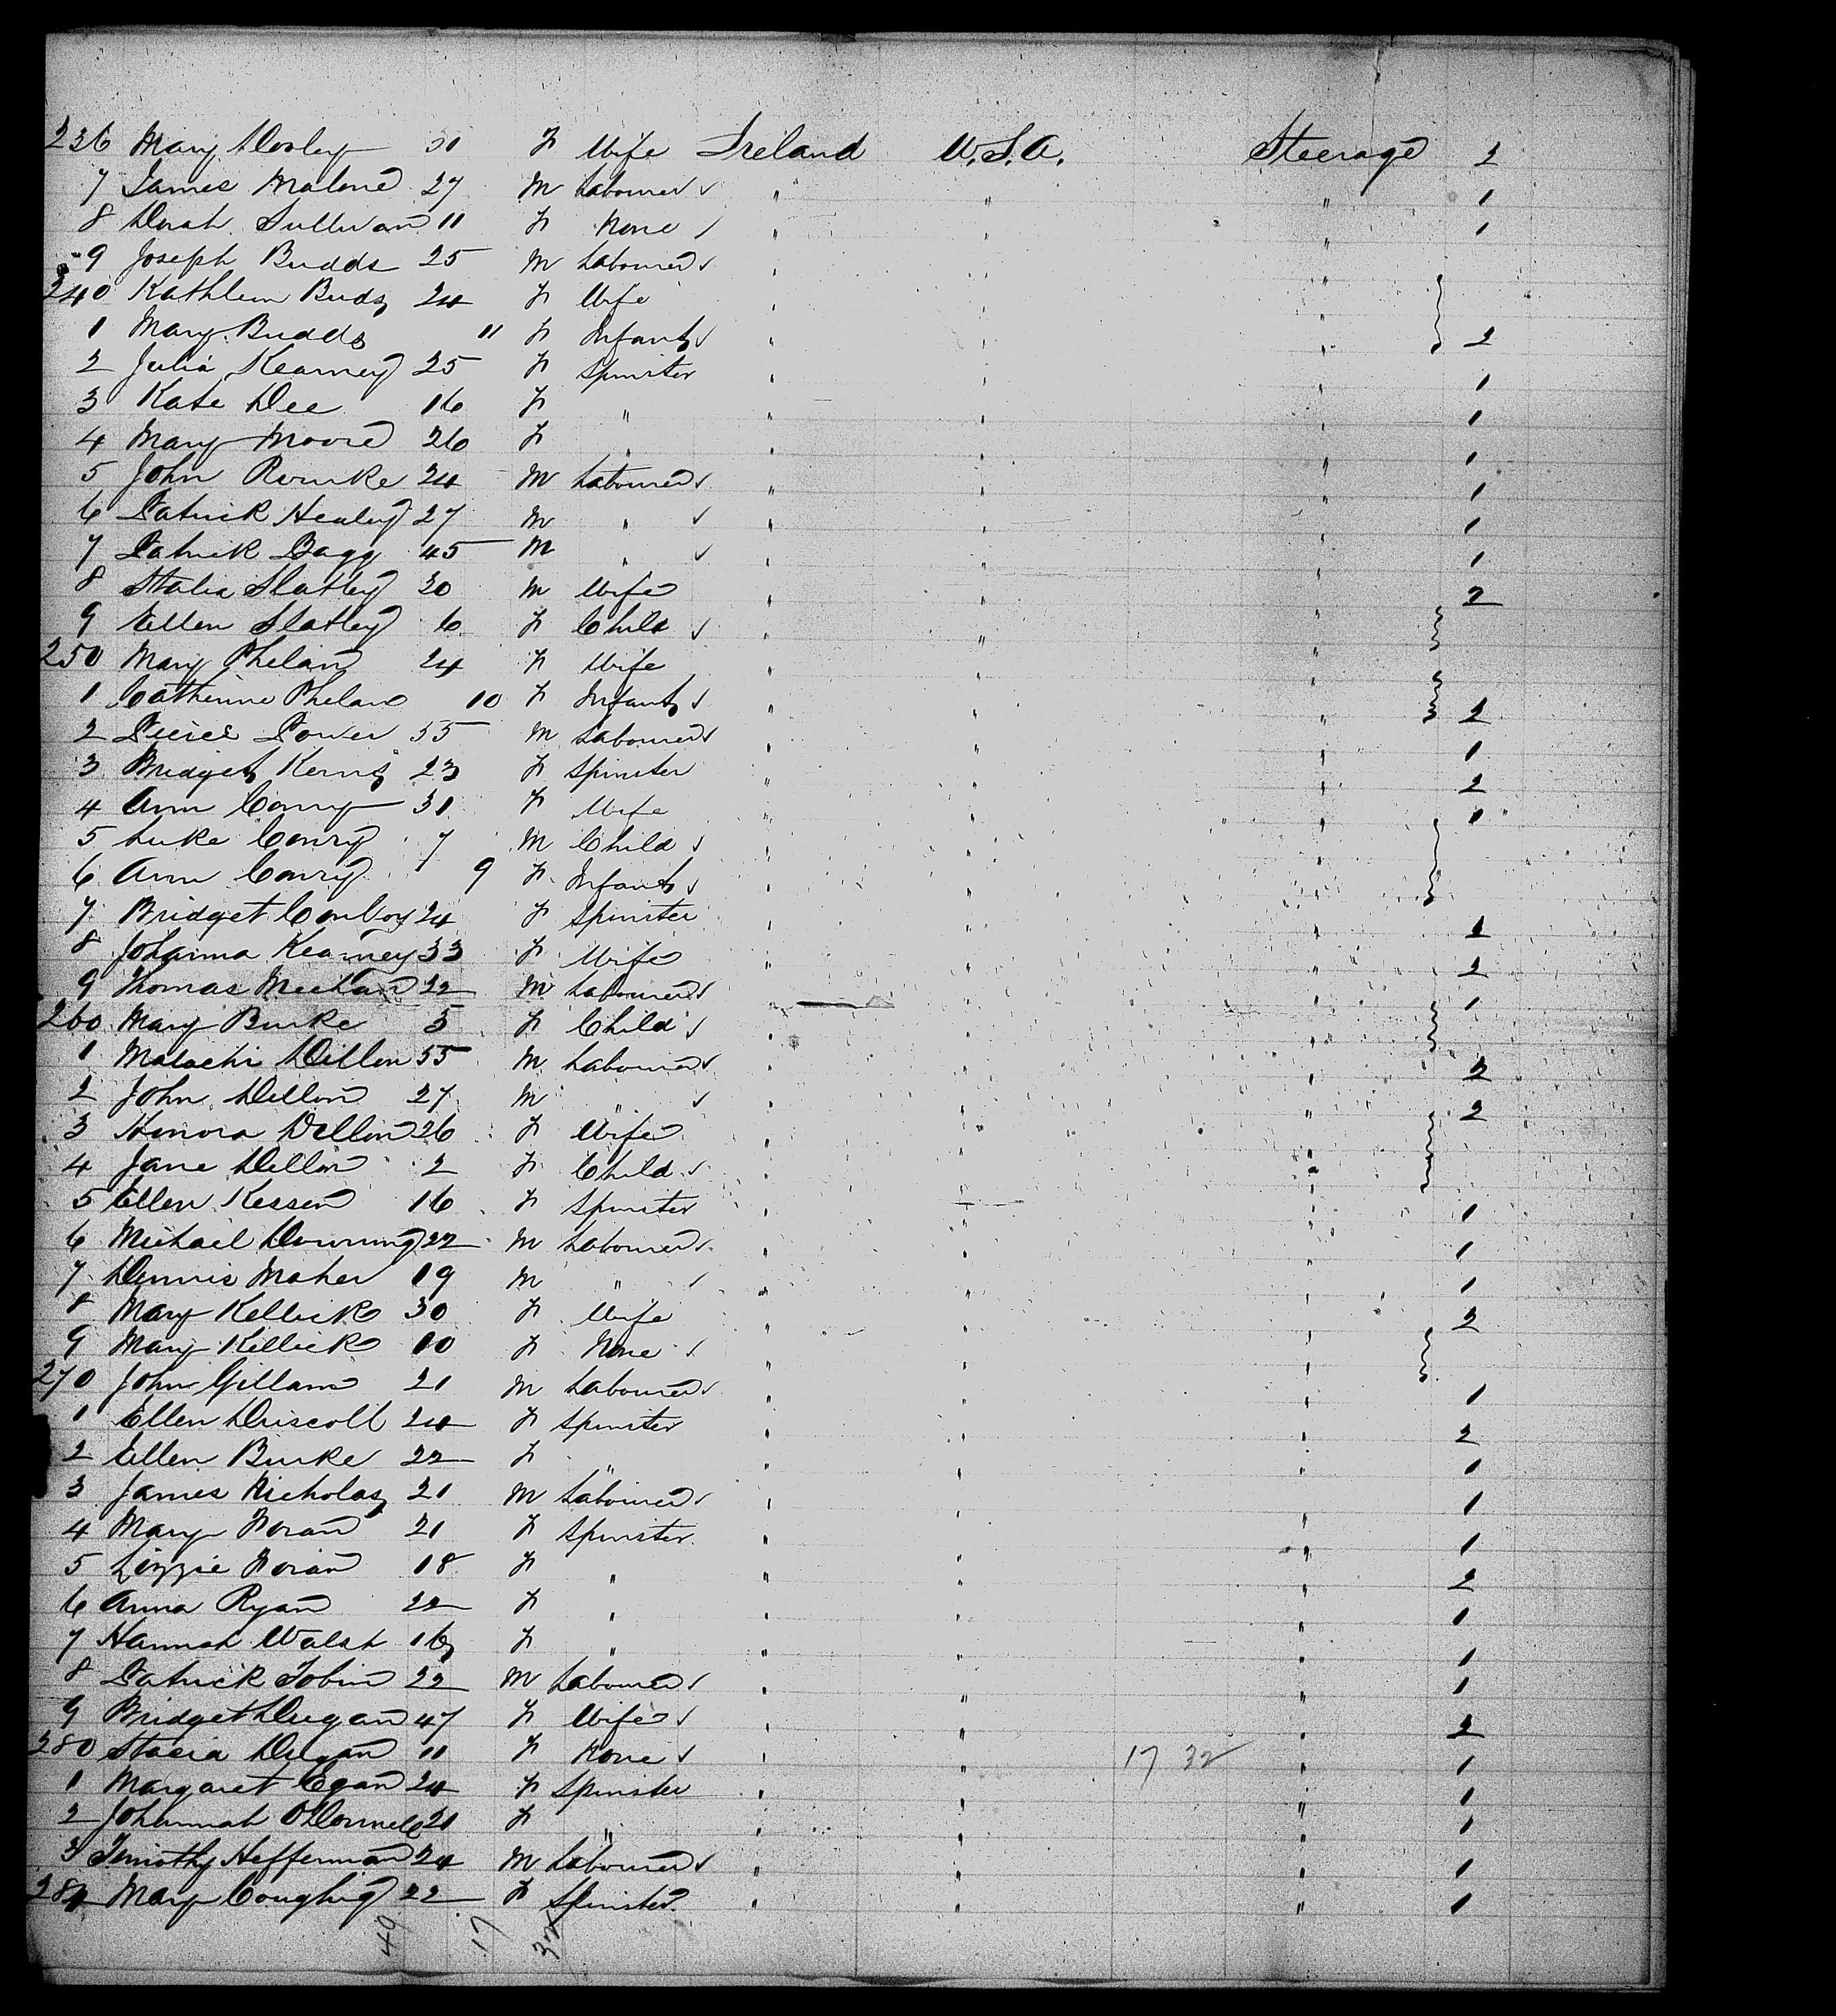 236 Mary Dooley 30 F Wife Ireland U.S.A. Steerage 2
7 James Malone 27 M Labourer " " " 1
8 Norah Sullivan 11 F None " " " 1
9 Joseph Budds 25 M Labourer " " "
240 Kathleen Budds 24 F Wife " " "
1 Mary Budds 11 F Infant " " " 2
2 Julia Kearney 25 F Spinster " " " 1
3 Kate Dee 16 F " " " " 1
4 Mary Moore 26 F " " " " 1
5 John Rourke 24 M Labourer " " " 1
6 Patrick Healey 27 M " " " " 1
7 Patrick 45 M " " " " 1
8 Slatley 30 M Wife " " " 2
9 Ellen Slatley 6 F Child " " "
250 Mary Phelan 24 F Wife " " "
1 Catherine Phelan 10 F Infant " " " 2
2 Pierce Power 55 M Labourer " " " 1
3 Bridget 23 F Spinster " " " 2
4 Ann Conry 31 F Wife " " " 1
5 Luke Conry 7 M Child " " "
6 Ann Conry 9 F Infant " " "
7 Bridget Conboy 24 F Spinster " " " 1
8 Johanna Kearney 33 F Wife " " " 2
9 Thomas Meehan 22 M Labourer " " " 1
260 Mary Burke 5 F Child " " "
1 Malachi Dillon 55 M Labourer " " " 2
2 John Dillon 27 M " " " " 2
3 Honora Dillon 26 F Wife " " "
4 Jane Dillon 2 F Child " " "
5 Ellen 16 F Spinster " " " 1
6 Michael Downing 22 M Labourer " " " 1
7 Dennis Maher 19 M " " " " 1
8 Mary Kellick 30 F Wife " " " 2
9 Mary Killick 10 F None " " "
270 John Gillam 21 M Labourer " " " 1
1 Ellen Driscoll 24 F Spinster " " " 2
2 Ellen Burke 22 F " " " " 1
3 James Nicholas 21 M Labourer " " " 1
4 Mary Foran 21 F Spinster " " " 1
5 Lizzie Foran 18 F " " " " 2
6 Anna Ryan 22 F " " " " 1
7 Hannah Walsh 16 F " " " " 1
8 Patrick Tobin 22 M Labourer " " " 1
9 Bridget Dugan 47 F Wife " " " 2
280 Stasia Dugan 11 F None " " 17 32 " 1
1 Margaret Egan 24 F Spinster " " " 1
2 Johannah O'Donnell 21 F " " " " 1
3 Timothy Heffernan 24 M Labourer " " " 1
284 Mary Coughig 22 F Spinster " " " 1
49 17 32